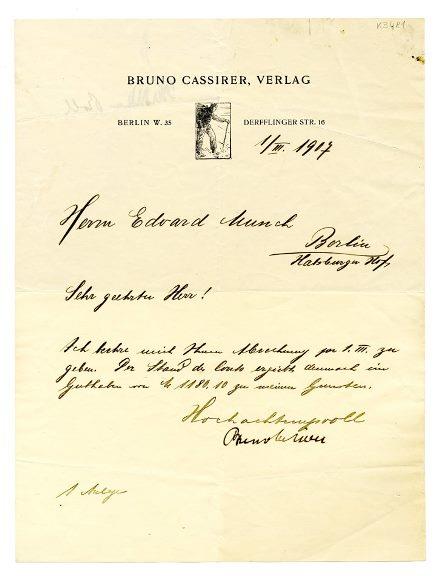 K3481
BRUNO CASSIRER, VERLAG
BERLIN W. 35 DERFFLINGER STR. 16
1/III. 1917
Herrn Edvard Munch
Berlin
Habsburger Hof,
Sehr geehrter Herr!
Ich beehre mich Ihnen Abrechnung per 1. III. zu
geben. Der Stand des Conto ergiebt demnach ein
Guthaben von M 1180.10 zu meinen Gunsten.
Hochachtungsvoll
Bruno Cassirer
1 Anlage